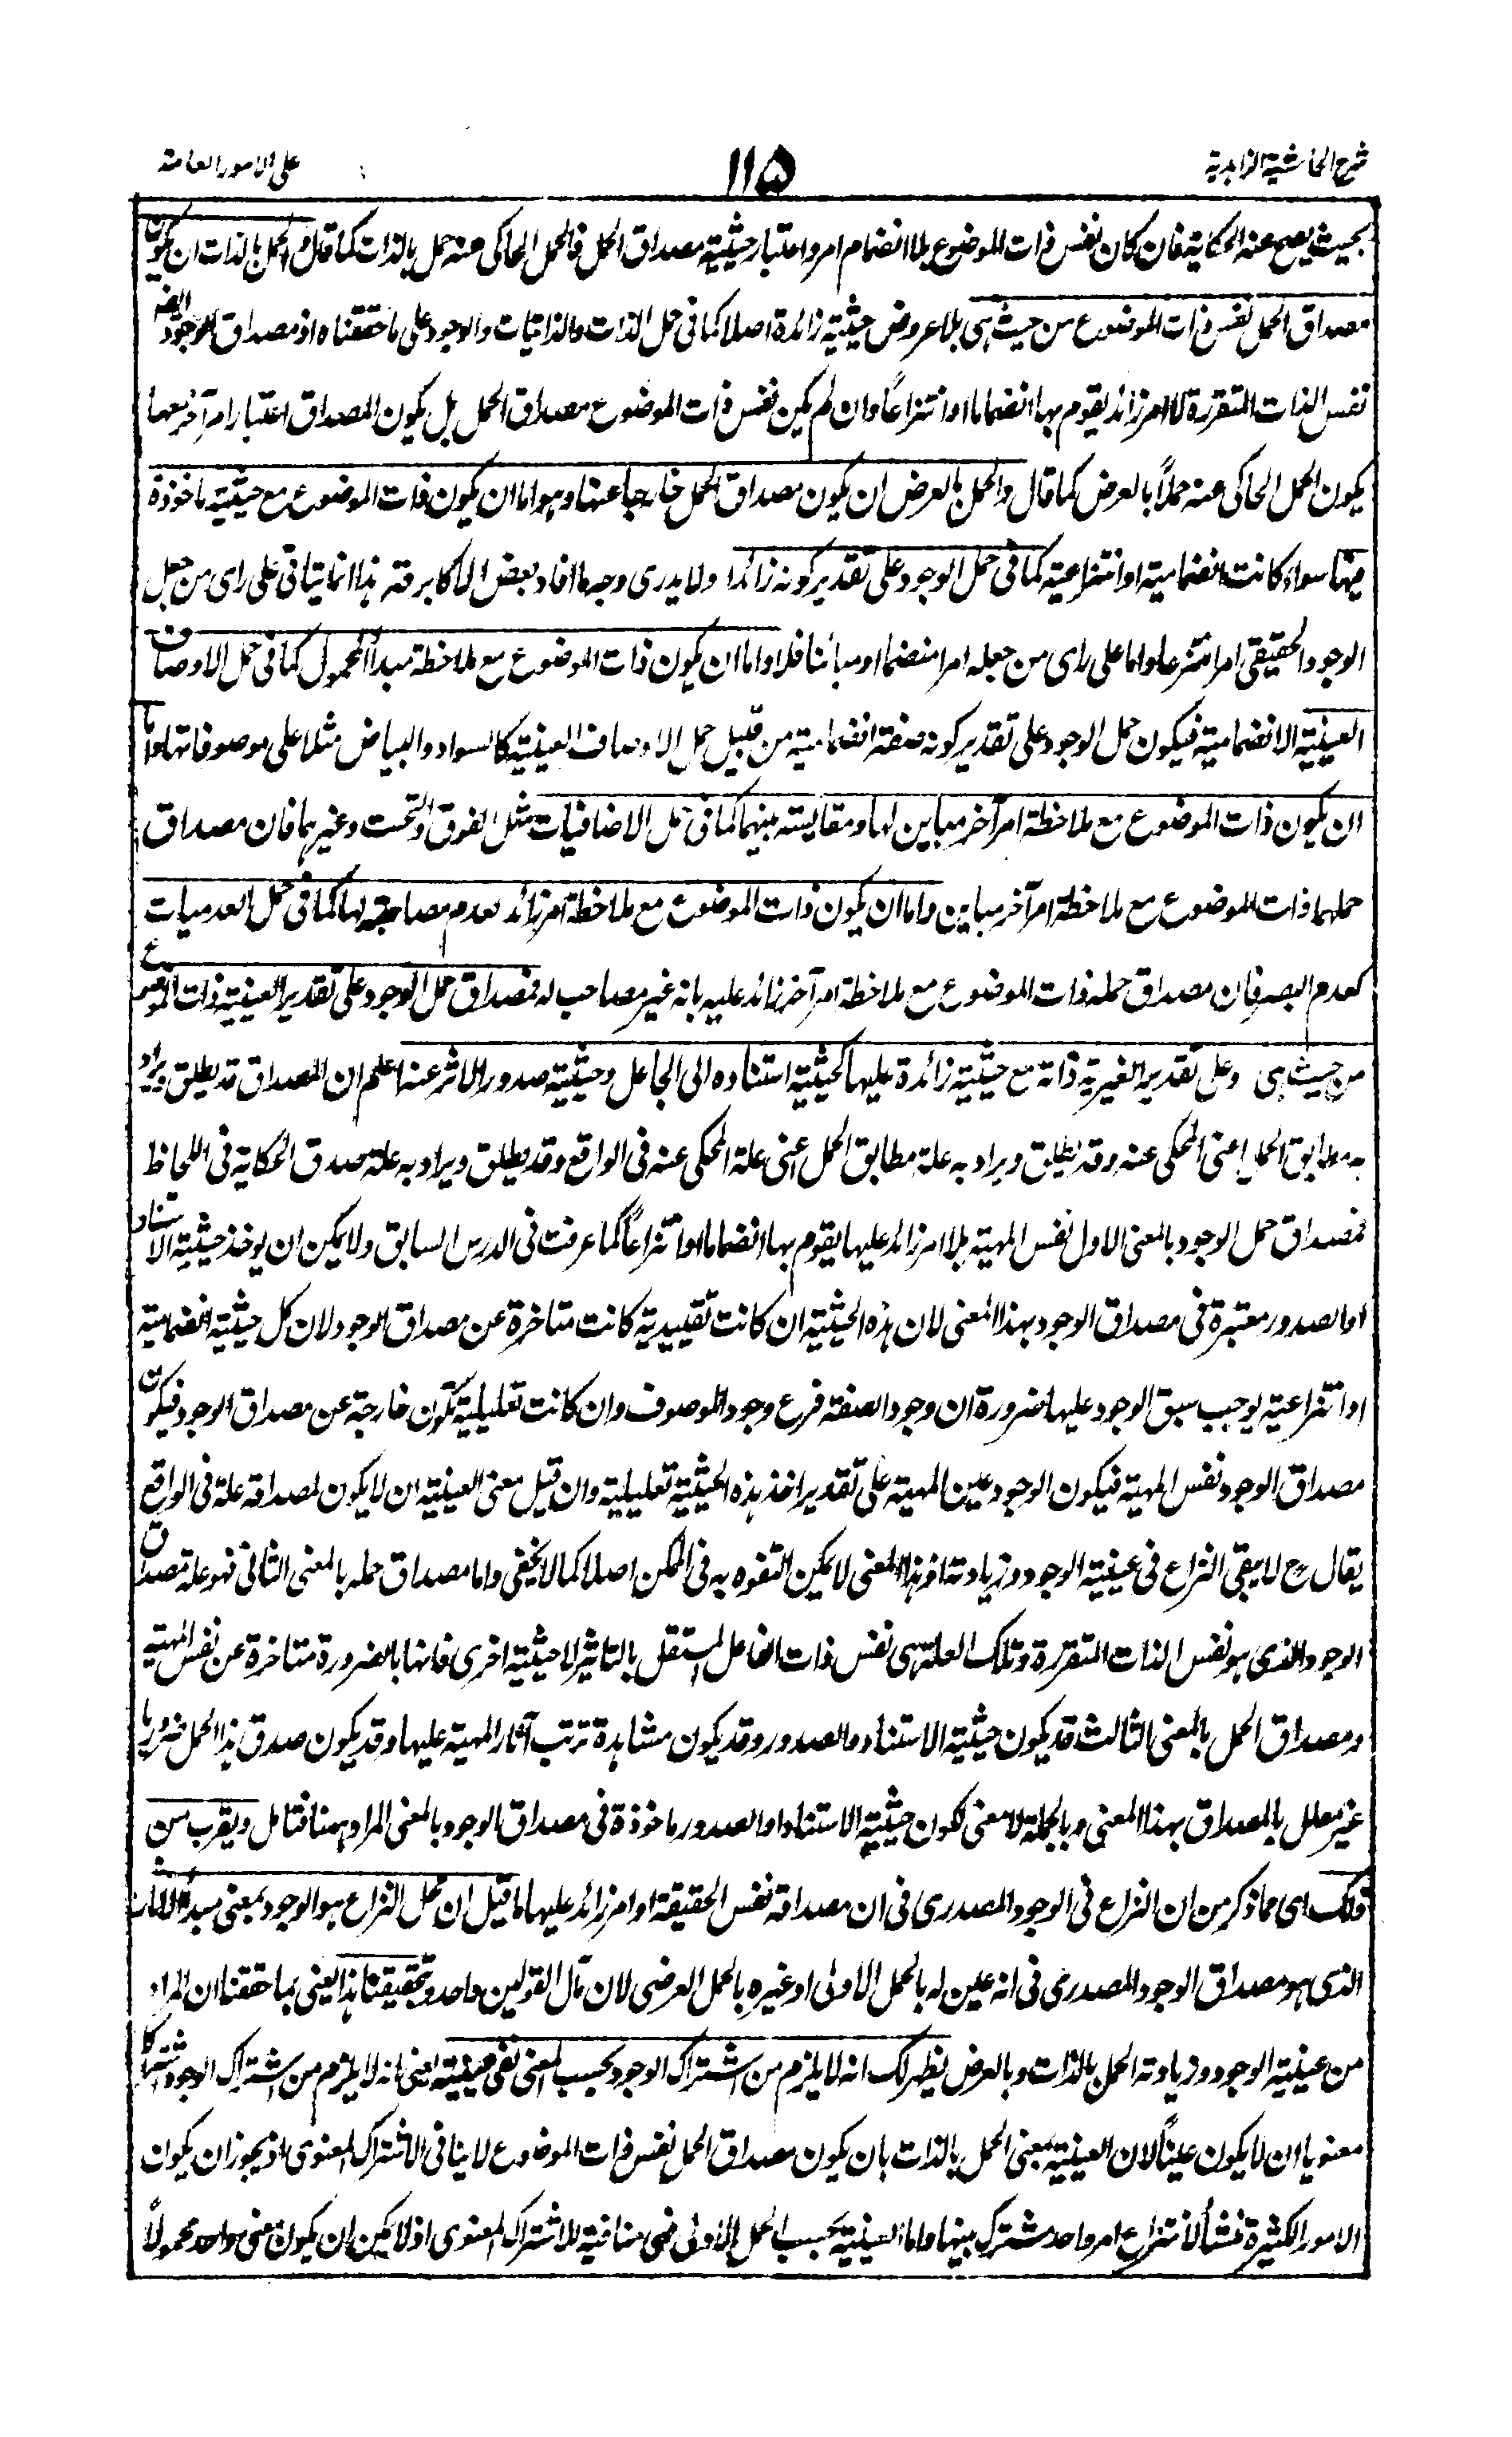 شرح الحاشية الزاهدية
١١٥
على الامور العامة
بحيث يصح عنه الحكاية فان كان نفس ذات الموضوع بلا انضمام امر واعتبار حيثية مصداق الحمل فالحمل الحاكى عنه حمل بالذات كما قال والحمل بالذات ان يكون
مصداق الحمل نفس ذات الموضوع من حيث هى بلا عروض حيثية زائدة اصلا كما فى حمل الذات والذاتيات والوجود على ما حققناه اذ مصداق الوجود
نفس الذات المتقررة لا امر زائد يقوم بها انضماما او انتزاعاً وان لم يكن نفس ذات الموضوع مصداق الحمل بل يكون المصداق اعتبار امر آخر معها
يكون الحمل الحاكى عنه حملاً بالعرض كما قال والحمل بالعرض ان يكون مصداق الحمل خارجا عنها وهو اما ان يكون ذات الموضوع مع حيثية ماخوذة
فيها سواء كانت انضمامية او انتزاعية كما فى حمل الوجود على تقدير كونه زائدا ولا يدرى وجه ما افاد بعض الاكابر قد هذا انما يتاتى على راى من جعل
الوجود الحقيقى امرا منتزعا واما على راى من جعله امرا منضما او مبائنا فلا واما ان يكون ذات الموضوع مع ملاحظة مبدأ المحمول كما فى حمل الاوصاف
العينية الانضمامية فيكون حمل الوجود على تقدير كونه صفة انضمامية من قبيل حمل الاوصاف العينية كالسواد والبياض مثلا على موصوفاتها واما
ان يكون ذات الموضوع مع ملاحظة امر آخر مباين لها ومقايسة بينهما كما فى حمل الاضافيات مثل الفوق والتحت وغيرهما فان مصداق
حملهما ذات الموضوع مع ملاحظة امر آخر مباين واما ان يكون ذات الموضوع مع ملاحظة امر زائد بعدم مصاحبته لها كما فى حمل العدميات
كعدم البصر فان مصداق حمله ذات الموضوع مع ملاحظة امر آخر زائد عليه بانه غير مصاحب له فمصداق حمل الوجود على تقدير العينية ذات الموضوع
من حيث هى وعلى تقدير الغيرية ذاته مع حيثية زائدة عليها كحيثية استناده الى الجاعل وحيثية صدور الاثر عنه اعلم ان المصداق قد يطلق ويراد
به مطابق الحمل اعنى المحكى عنه وقد يطلق ويراد به علة مطابق الحمل اعنى علة المحكى عنه فى الواقع وقد يطلق ويراد به علة صدق الحكاية فى اللحاظ
فمصداق حمل الوجود بالمعنى الاول نفس المهية بلا امر زائد عليها يقوم بها انضماما او انتزاعاً كما عرفت فى الدرس السابق ولا يمكن ان يوخذ حيثية الاستناد
او الصدور معتبرة فى مصداق الوجود بهذا المعنى لان هذه الحيثية ان كانت تقييدية كانت متاخرة عن مصداق الوجود لان كل حيثية انضمامية
او انتزاعية يوجب سبق الوجود عليها ضرورة ان وجود الصفة فرع وجود الموصوف وان كانت تعليلية تكون خارجة عن مصداق الوجود فيكون
مصداق الوجود نفس المهية فيكون الوجود عين المهية على تقدير اخذ هذه الحيثية تعليلية وان قيل معنى العينية ان لا يكون لمصداقه علة فى الواقع
يقال ح لا يبقى النزاع فى عينية الوجود وزيادته اذ هذا المعنى لا يمكن التفوه به فى الممكن اصلا كما لا يخفى واما مصداق حمله بالمعنى الثانى فهو علة مصداق
الوجود الذى هو نفس الذات المتقررة وتلك العلة هى نفس ذات الفاعل المستقل بالتاثير لا حيثية اخرى فانها بالضرورة متاخرة عن نفس المهية
ومصداق الحمل بالمعنى الثالث قد يكون حيثية الاستناد والصدور وقد يكون مشاهدة ترتب آثار المهية عليها وقد يكون صدق هذا الحمل ضروريا
غير معلل بالمصداق بهذا المعنى وبالجملة لا معنى لكون حيثية الاستناد او الصدور ماخوذة فى مصداق الوجود بالمعنى المراد ههنا فتامل ويقرب من
ذلك اى مما ذكر من ان النزاع فى الوجود المصدرى فى ان مصداقه نفس الحقيقة او امر زائد عليها ما قيل ان محل النزاع هو الوجود بمعنى مبدأ الآثار
الذى هو مصداق الوجود المصدرى فى انه عين له بالحمل الاولى او غيره بالحمل العرضى لان مآل القولين واحد وتحقيقنا هذا يعنى بما حققنا ان المراد
من عينية الوجود وزيادته الحمل بالذات وبالعرض يظهر لك انه لا يلزم من اشتراك الوجود بحسب المعنى نفى عينيته يعنى انه لا يلزم من اشتراك الوجود اشتراكا
معنويا ان لا يكون عيناً لان العينية بمعنى الحمل بالذات بان يكون مصداق الحمل نفس ذات الموضوع لا ينافى الاشتراك المعنوى اذ يجوز ان يكون
الامور الكثيرة منشأ لانتزاع امر واحد مشترك بينها واما العينية بحسب الحمل الاولى فهى منافية للاشتراك المعنوى اذ لا يمكن ان يكون معنى واحد محمولاً